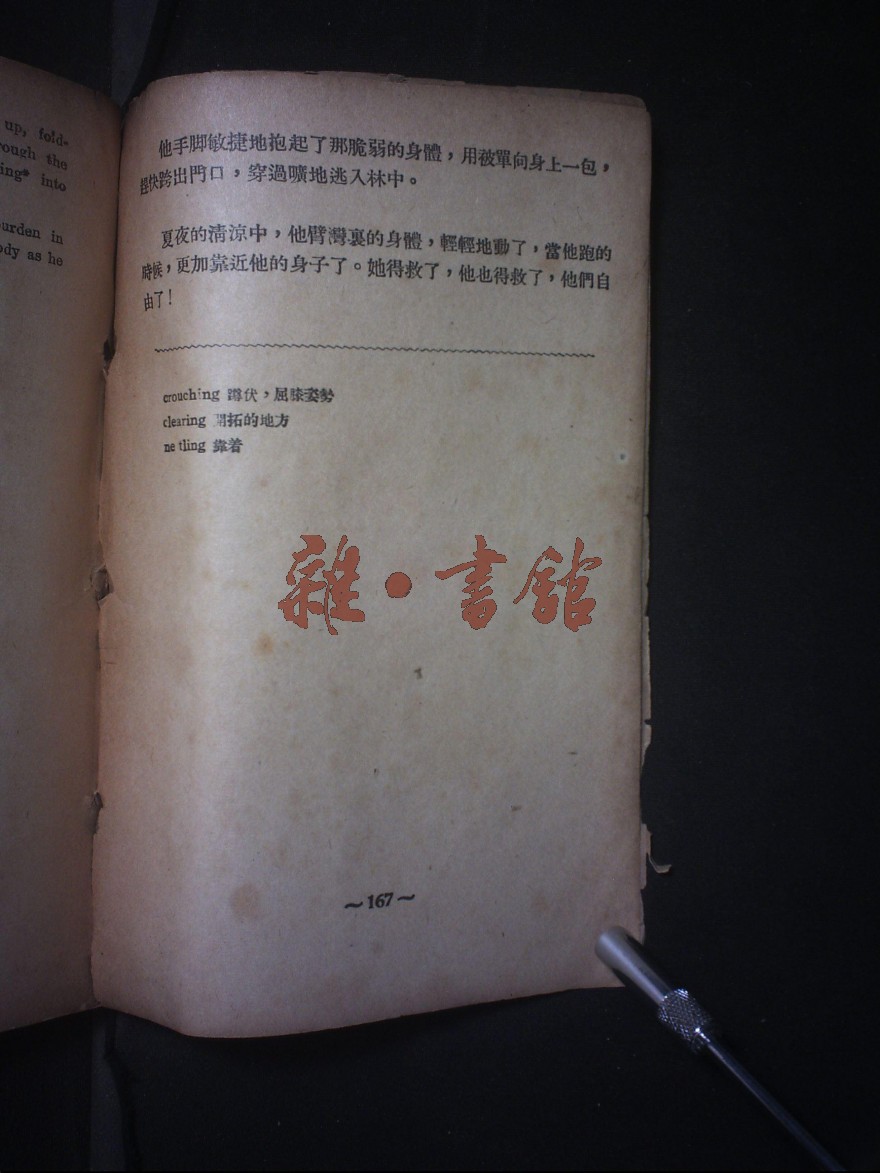 up, fold-
rough the
ing* into
urden in
ody as he
他手脚敏捷地抱起了那脆弱的身體，用被單向身上一包，
趕快跨出門口，穿過曠地逃入林中。
夏夜的清涼中，他臂灣裏的身體，輕輕地動了，當他跑的
時候，更加靠近他的身子了。她得救了，他也得救了，他們自
由了！
crouching 蹲伏，屈膝姿勢
clearing 開拓的地方
ne tling 靠着
雜·書館
～167～